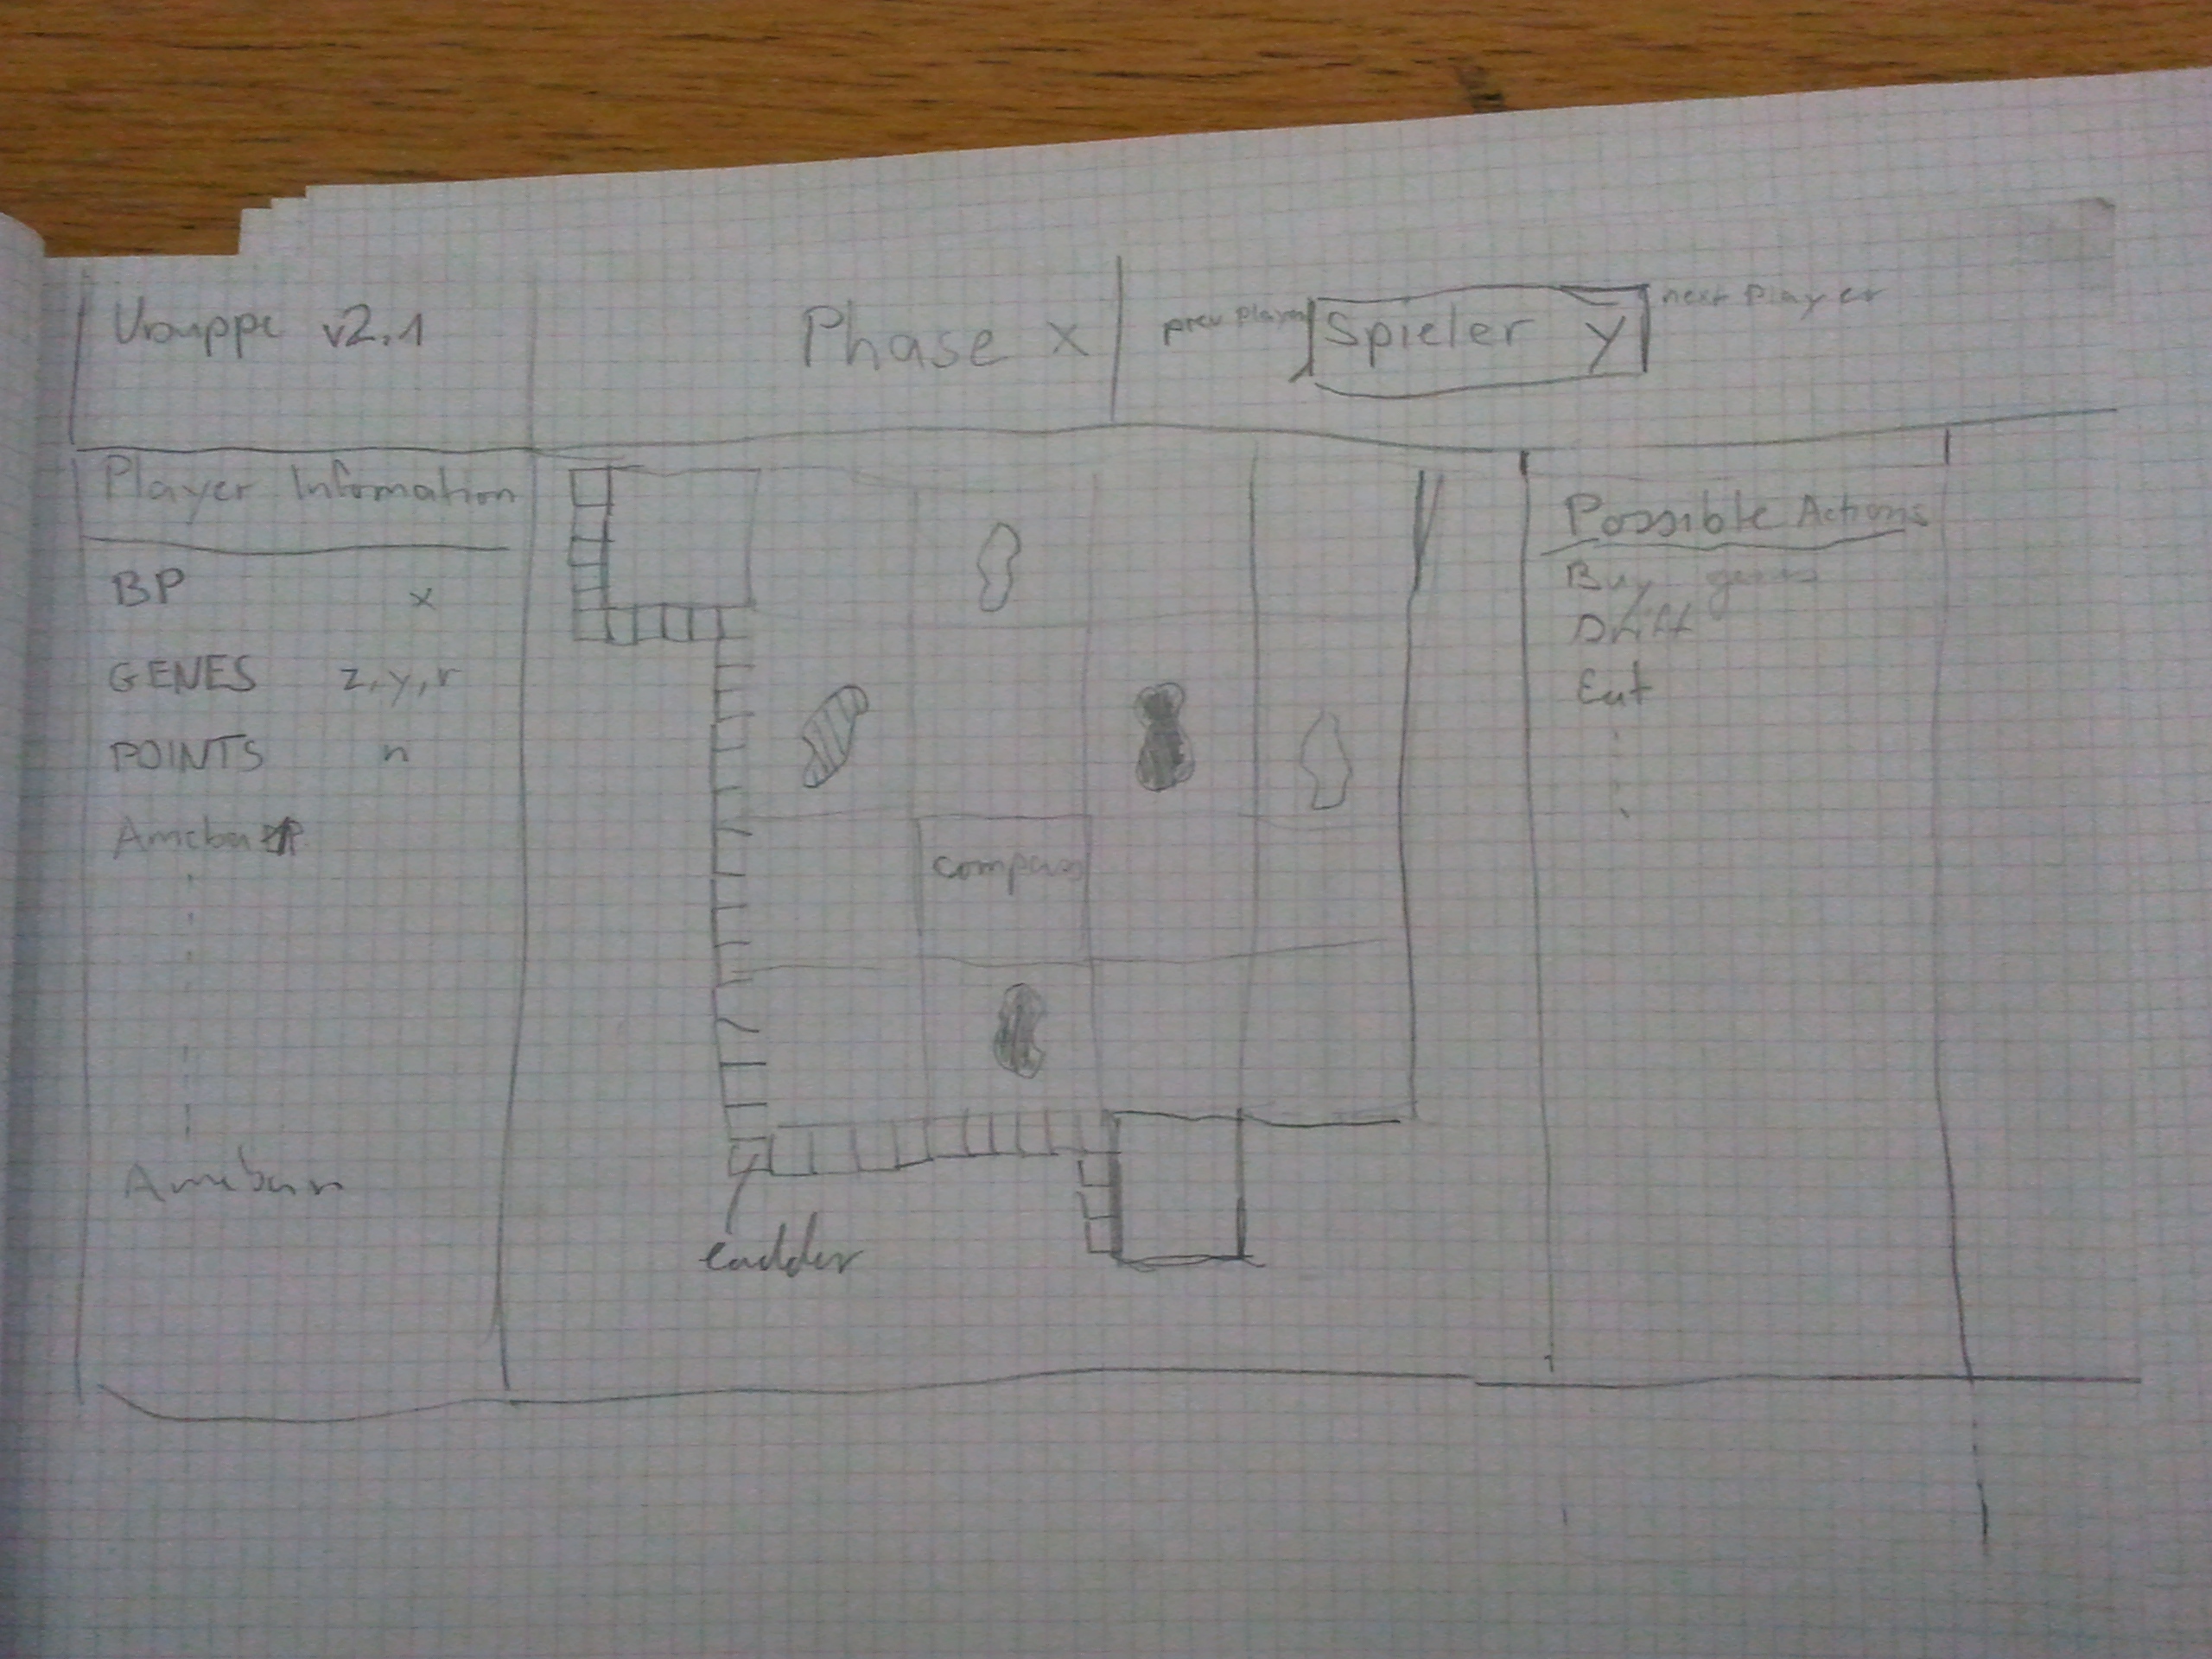 Ursuppe v2.1
Phase x
prev Player
Spieler y
next Player
Player Information
BP x
GENES z,y,r
POINTS n
Ameba
Ameba n
compass
ladder
Possible Actions
Buy genes
Drift
Eat